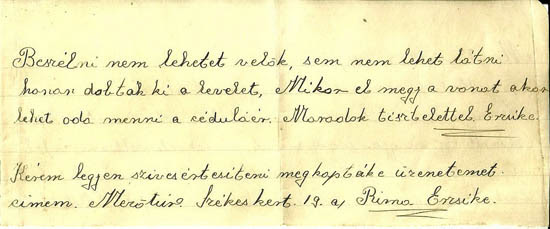 Beszélni nem lehetet velök, sem nem lehet látni
honan dobták ki a levelet, Mikor el megj a vonat akor
lehet oda menni a céduláér. Maradok tisztelettel Erzsike.
Kérem legjen szivesértesiteni megkaptáke üzenetemet.
cimem. Mezőtúr Székeskert. 19. a, Rima Erzsike.